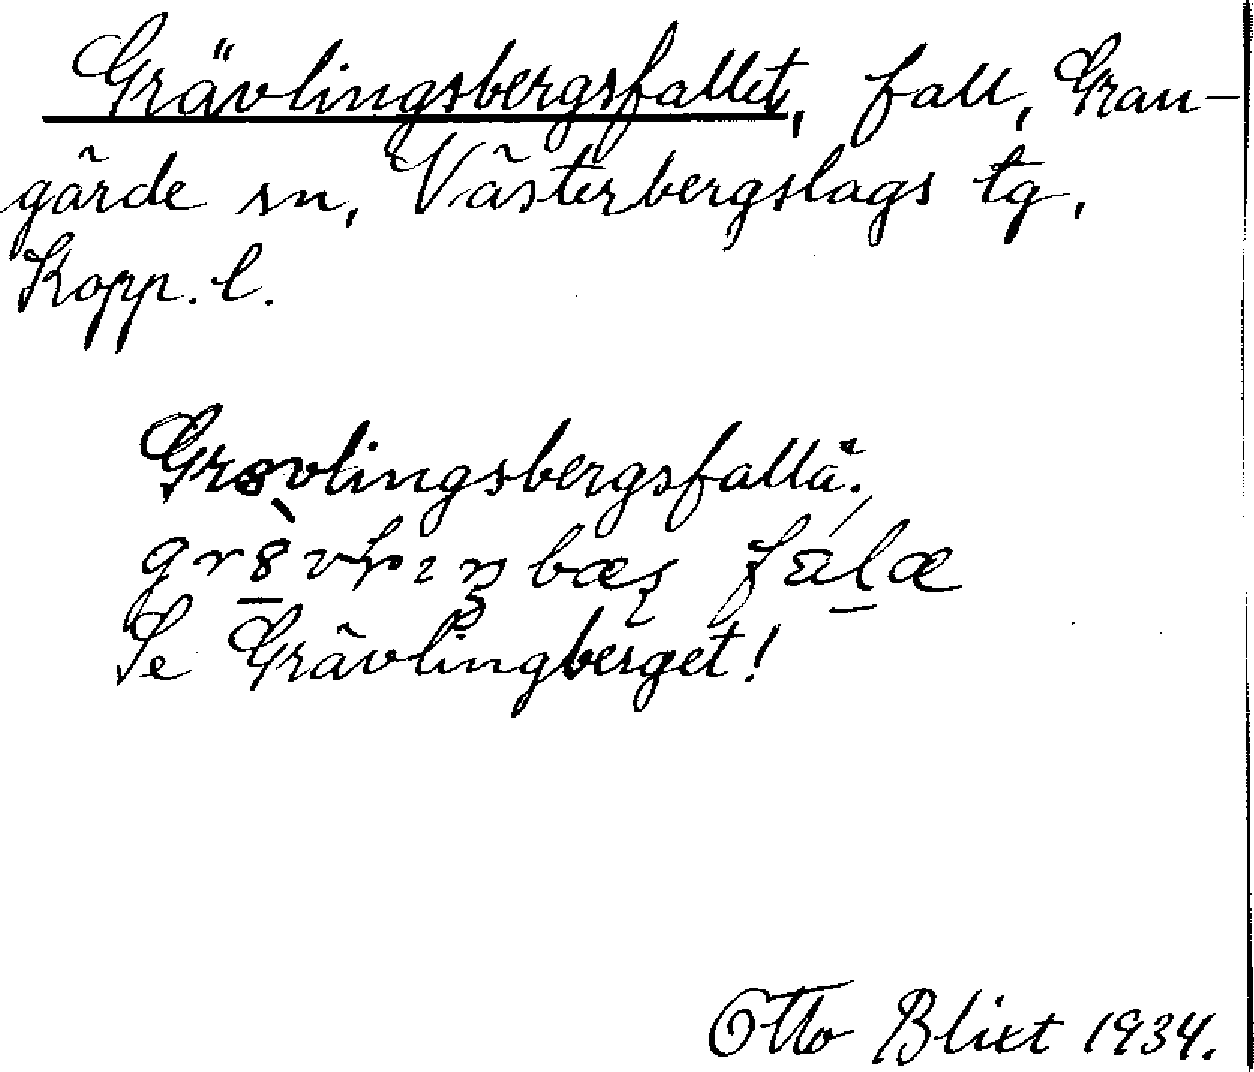 Grävlingsbergsfallet, fall, Gran-
gärde sn, Västerbergslags tg,
Kopp. l.
Grovlingsbergsfallä.
Se Grävlingberget!
Otto Blixt 1934.